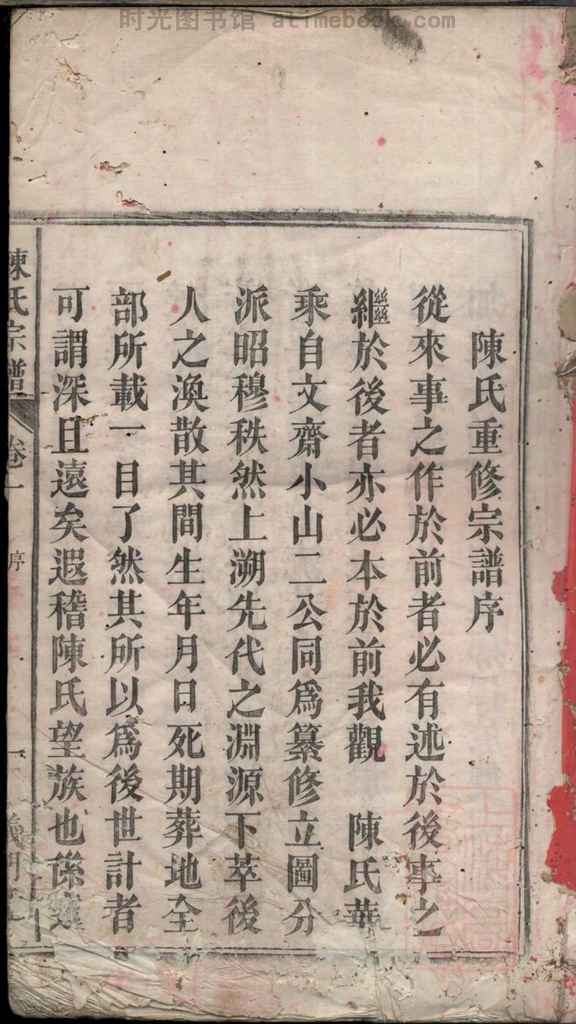 时光图书馆 atimebook.com
陳氏重修宗譜序
從來事之作於前者必有述於後事之
繼於後者亦必本於前我觀 陳氏華
乘自文齋小山二公同為纂修立圖分
派昭穆秩然上溯先代之淵源下萃後
人之渙散其間生年月日死期葬地全
部所載一目了然其所以為後世計者
可謂深且遠矣遐稽陳氏望族也係
陳氏宗譜 卷一 序 一